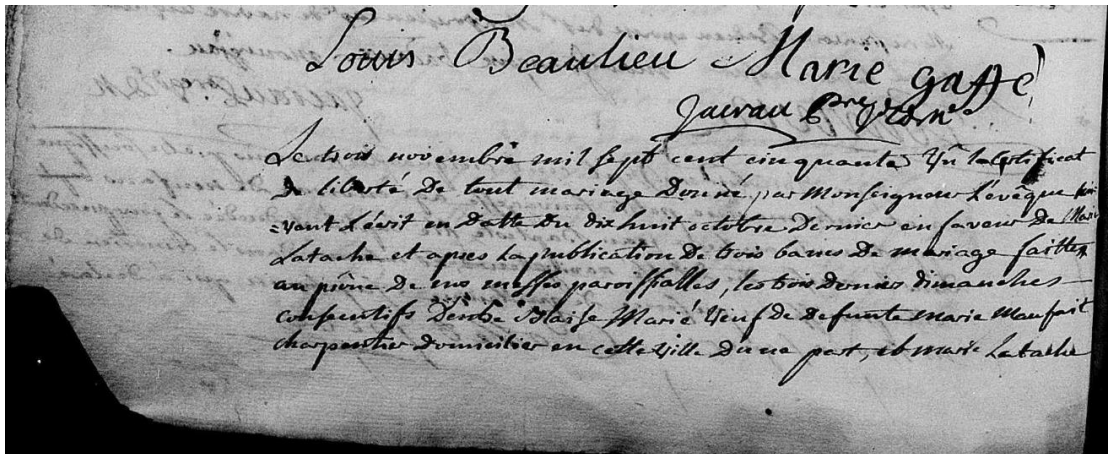 Louis Beaulieu Marie gaffé
Jacrau ptre vicre
Le trois novembre mil sept cent cinquante Vû le certificat
de liberté de tout mariage donné par Monseigneur L'évêque sui
=vant L'écrit en datte du dix huit octobre dernier en faveur de Marie
Latache et apres la publication de trois bancs de mariage faittes
au prône de nos messes paroissialles, les trois derniers dimanches
consecutifs D'entre Blaise Marié Veuf de defunte marie Maufait
charpentier domicilier en cette ville d'une part, et marie Latache